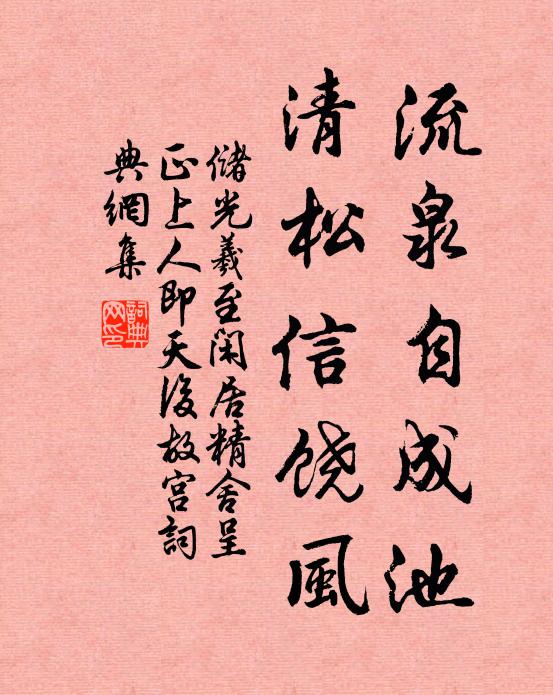 流泉自成池
清松信饶風
儲光羲至閑居精舍呈
正上人即天後故宫詞
典網集
詞典网印